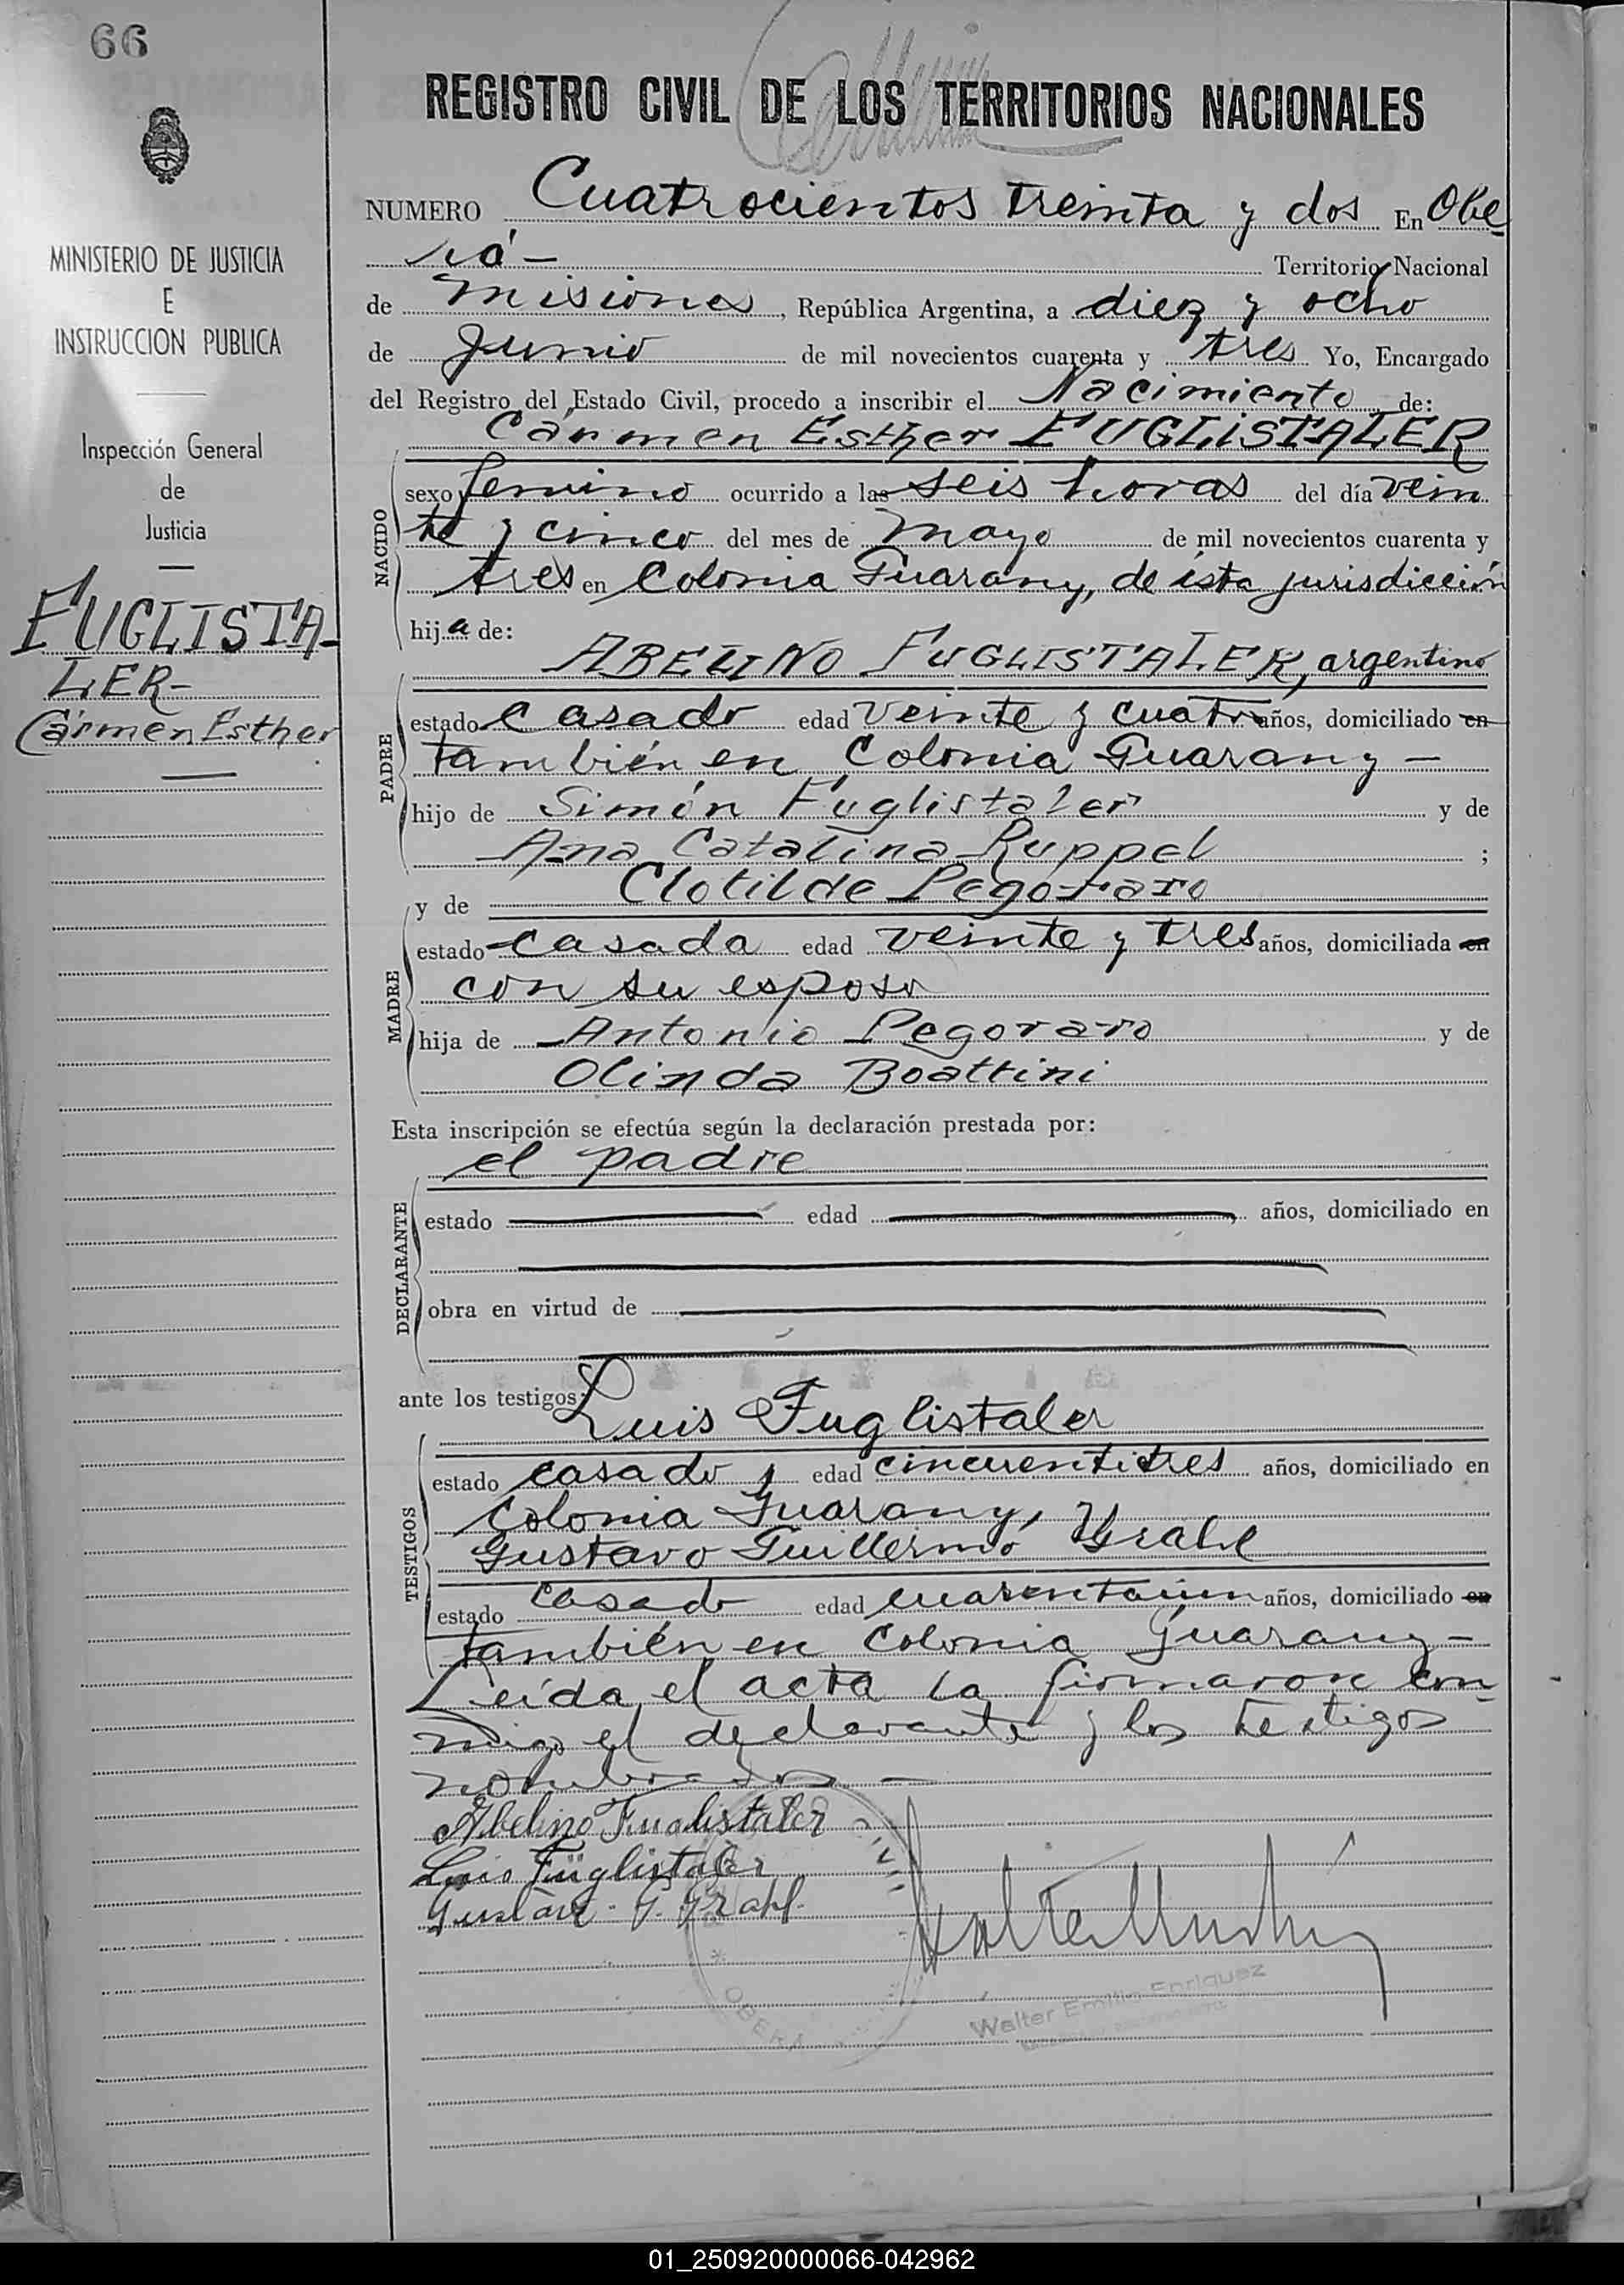 66
REGISTRO CIVIL DE LOS TERRITORIOS NACIONALES
MINISTERIO DE JUSTICIA
E
INSTRUCCION PUBLICA
Inspección General
de
Justicia
FUGLISTA-
LER-
Cármen Esther
NUMERO Cuatrocientos treinta y dos En Obe
rá - Territorio Nacional
de Misiones, República Argentina, a diez y ocho
de Junio de mil novecientos cuarenta y tres Yo, Encargado
del Registro del Estado Civil, procedo a inscribir el Nacimiento de:
Cármen Esther FUGLISTALER
NACIDO
sexo femenino ocurrido a las seis horas del día vein
te y cinco del mes de Mayo de mil novecientos cuarenta y
tres en Colonia Guarany, de ésta jurisdicción
hija de:
ABELINO FUGLISTALER, argentino
PADRE
estado casado edad veinte y cuatro años, domiciliado en
también en Colonia Guarany -
hijo de Simón Fuglistaler y de
Ana Catalina Ruppel ;
y de Clotilde Pegoraro
MADRE
estado casada edad veinte y tres años, domiciliada en
con su esposo
hija de Antonio Pegoraro y de
Olinda Boattini
Esta inscripción se efectúa según la declaración prestada por:
el padre
DECLARANTE
estado edad años, domiciliado en
obra en virtud de
ante los testigos: Luis Fuglistaler
TESTIGOS
estado casado, edad cincuentitres años, domiciliado en
Colonia Guarany, y
Gustavo Guillermo Grahl
estado casado edad cuarentaiun años, domiciliado en
también en Colonia Guarany -
Leída el acta la firmaron con
migo el declarante y los testigos
nombrados -
Abelino Fuglistaler
Luis Füglistaler
Gustavo G. Grahl.
OBERA
Walter Emilio Enriquez
01_250920000066-042962